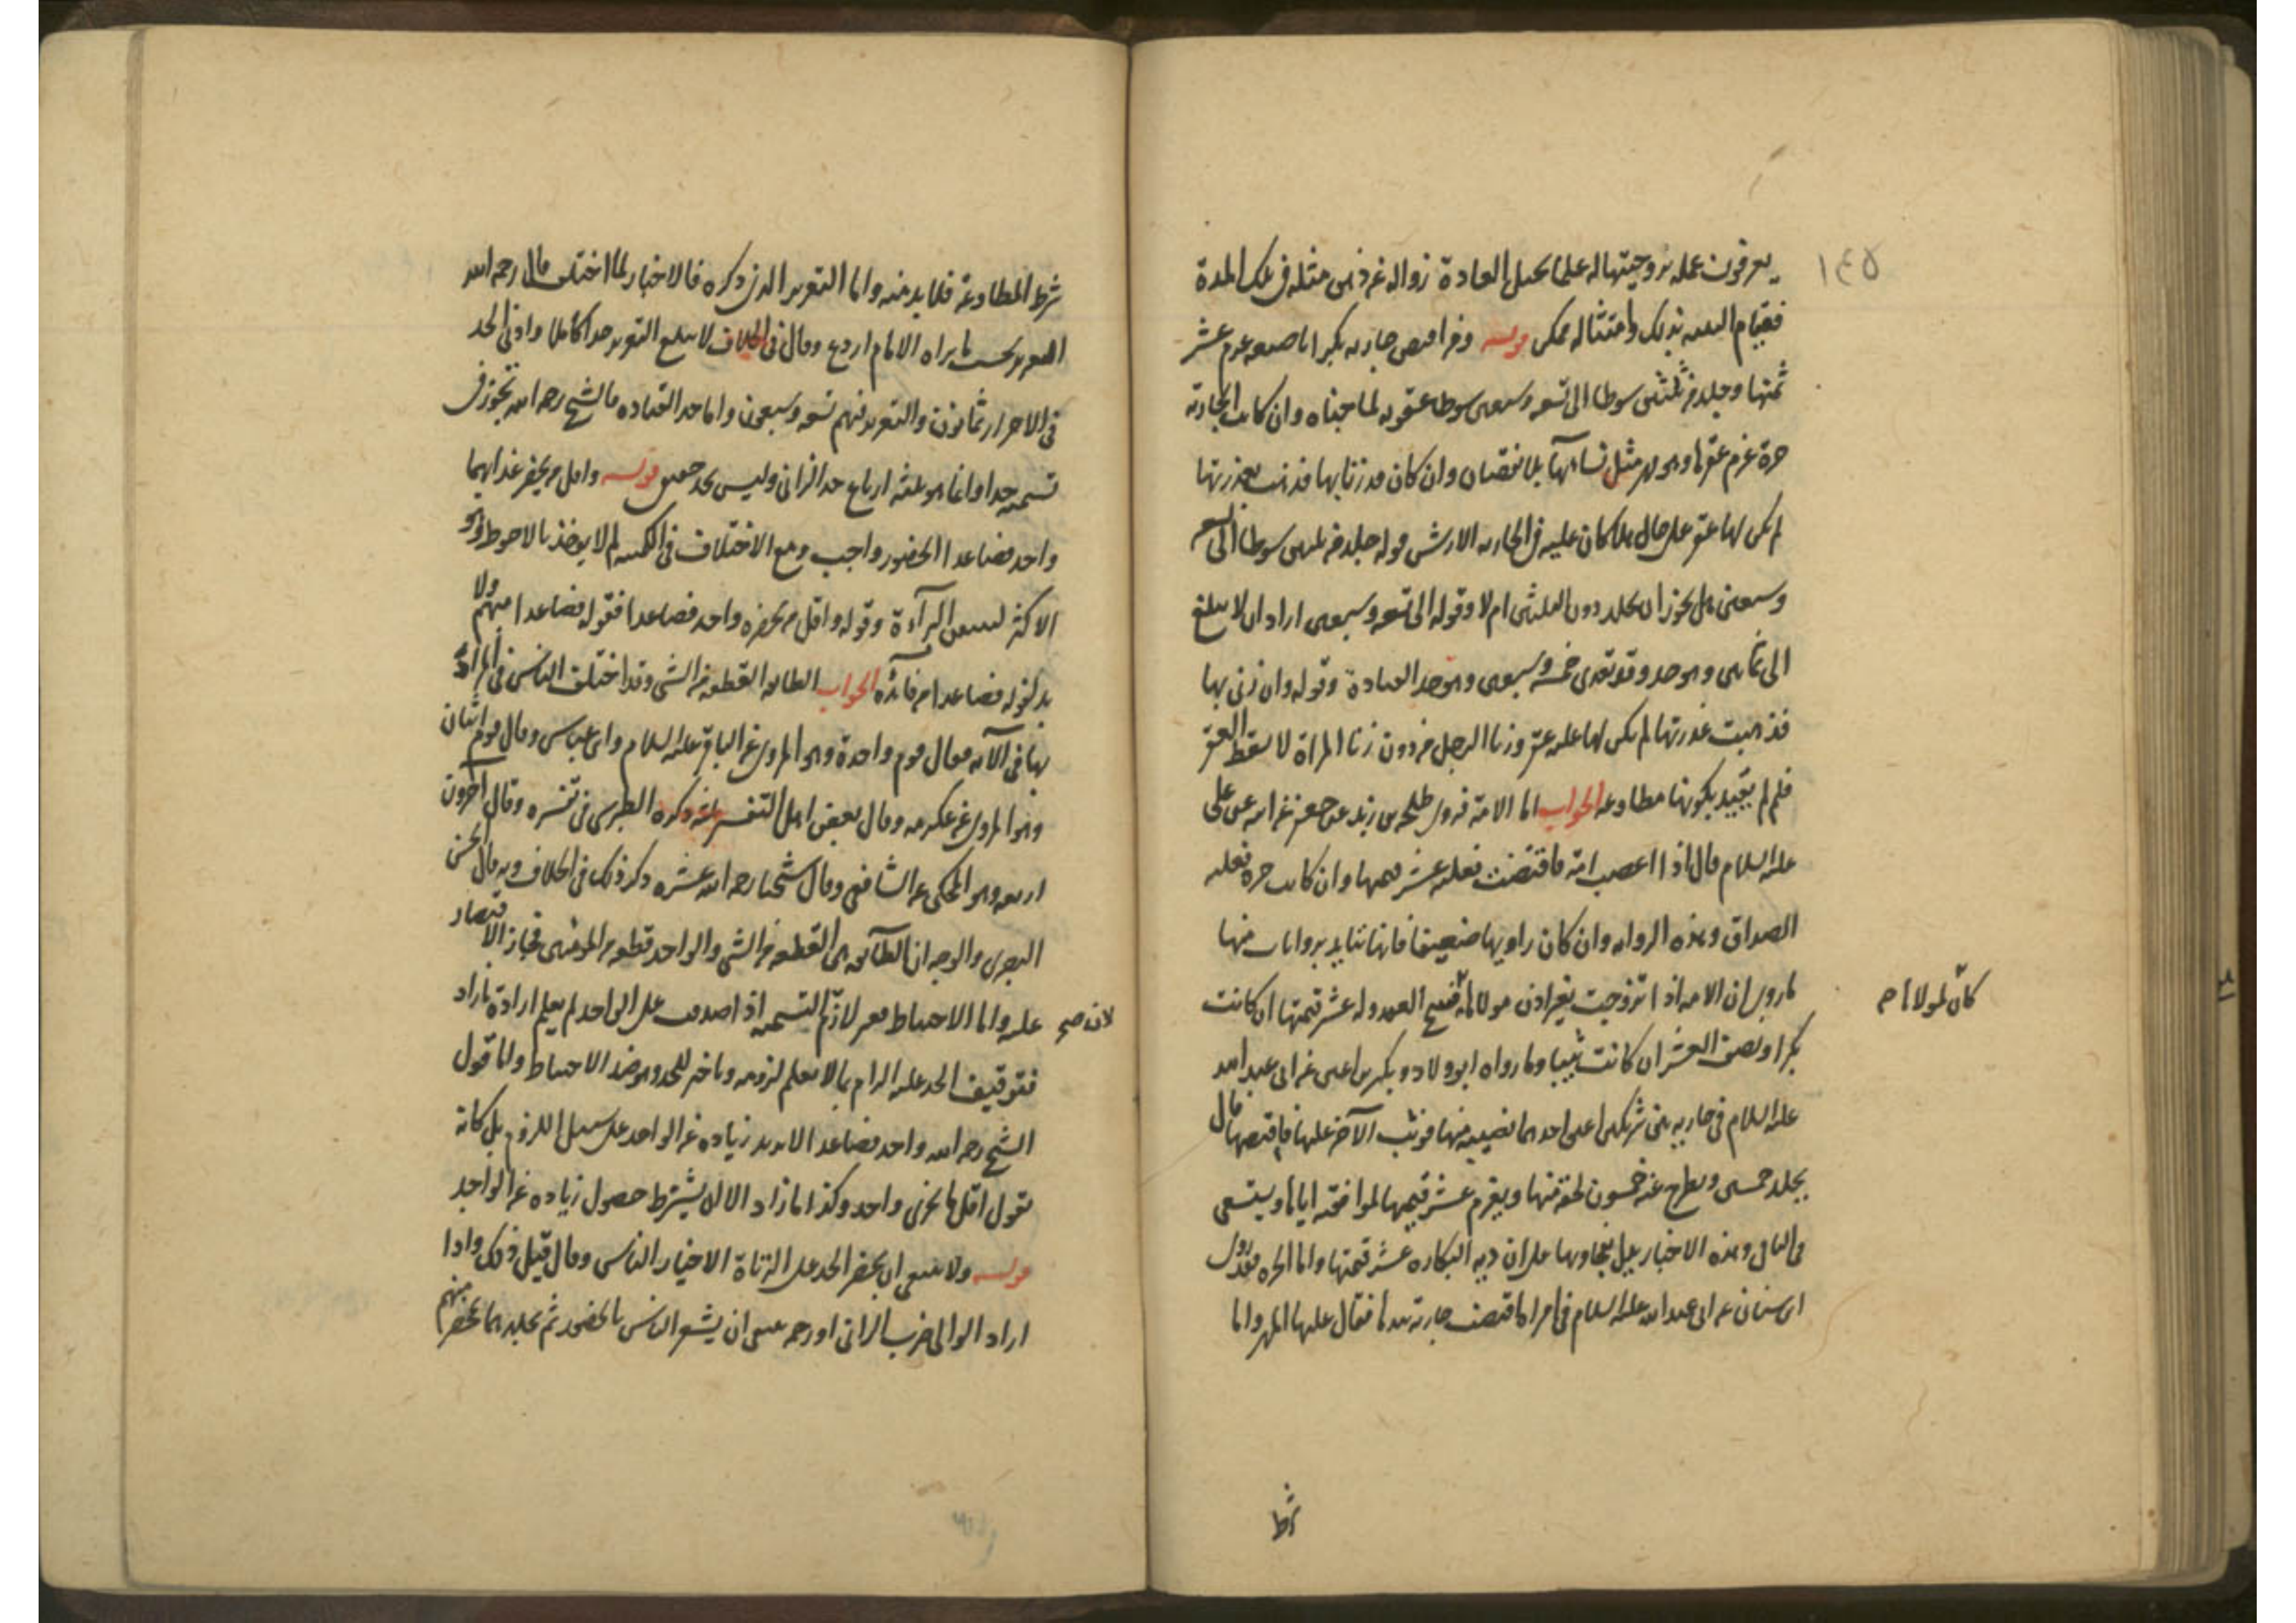 ١٤٥
يعرفون عمله بزوجيتها له علما يحيل العادة زواله عن ذهن مثله في تلك المدة
فقيام البينة بذلك وامتثاله ممكن قوله ومن افتض جارية بكرا باصبعه غرم عشر
ثمنها وجلد من ثلثين سوطا الى تسعة وسبعين سوطا عقوبة لما جناه وان كانت الجارية
حرة غرم عقرها وهو مهر مثل نسائها بلا نقصان وان كان قد زنا بها فذهبت بعذرتها
لم يكن لها عقر على حال هلا كان عليه في الجارية الارش قوله جلد من ثلثين سوطا الى تسع
وسبعين هل يجوز ان يجلد دون الثلثين ام لا وقوله الى تسعة وسبعين اراد ان لا يبلغ
الى ثمانين وهو حد وقد تعدى خمسة وسبعين وهو حد القيادة وقوله وان زنى بها
فذهبت عذرتها لم يكن لها عليه عقر وزنا الرجل من دون زنا المراة لا يسقط العقر
فلم لم يقيد بكونها مطاوعة الجواب اما الامة فروى طلحة بن زيد عن جعفر عن ابيه عن علي
عليه السلام قال اذا اغتصب امة فاقتضت فعليه عشر قيمتها وان كانت حرة فعليه
الصداق وهذه الرواية وان كان راويها ضعيفا فانها تتايد بروايات منها
ما روى ان الامة اذا تزوجت بغير اذن مولاها العقد وله عشر قيمتها ان كانت
كان لمولاها
بكرا ونصف العشر ان كانت ثيبا وما رواه ابو ولاد وبكير بن اعين عن ابي عبد الله
عليه السلام في جارية بين شريكين اعتق احدهما نصيبه منها فوثب الآخر عليها فاقتضها قال
يجلد خمسين ويطرح عنه خمسون لحقه منها ويغرم عشر قيمتها لمواقعته اياها ويستسعى
في الباقي وهذه الاخبار يدل فحاويها على ان دية البكارة عشر قيمتها واما الحرة فقد روى
ابن سنان عن ابي عبد الله عليه السلام في امراة اقتضت جارية بيدها فقال عليها المهر واما
شرط
شرط المطاوعة فلا بد منه واما التعزير الذي ذكره فالاخبار لما اختلف قال رحمه الله
التعزير بحسب ما يراه الامام اردع وقال في الخلاف لا يبلغ التعزير حدا كاملا وادنى الحد
في الاحرار ثمانون والتعزير فيهم تسعة وسبعون واما حد القيادة فالشيخ رحمه الله تجوز في
تسميته حدا وانما هو ثلثة ارباع حد الزاني وليس بحد حقيقي قوله واقل من يحضر عذابهما
واحد فصاعدا الحضور واجب ومع الاختلاف في الكمية لم لا يوخذ بالاحوط وهو
الاكثر ليتيقن البراءة وقوله واقل من يحضره واحد فصاعدا فقوله فصاعدا مبهم ولا
بد لقوله فصاعدا من فائدة الجواب الطائفة القطعة من الشي وقد اختلف الناس في المراد
بها في الآية فقال قوم واحدة وهو المروي عن الباقر عليه السلام وابن عباس وقال قوم اثنان
وهو المروي عن عكرمة وقال بعض اهل التفسير ثلثة ذكره الطبرسي في تفسيره وقال آخرون
اربعة وهو المحكي عن الشافعي وقال شيخنا رحمه الله عشرة ذكر ذلك في الخلاف وبه قال الحسن
البصري والوجه ان الطائفة هي القطعة من الشي والواحد قطعة من المؤمنين فجاز الاقتصار
عليه واما الاحتياط فغير لازم التسمية اذا صدقت على الواحد لم يعلم ارادة ما زاد
لان صح
فتوقيف الحد عليه الزام بما لا يعلم لزومه وتاخير للحد وهو ضد الاحتياط واما قول
الشيخ رحمه الله واحد فصاعدا لا يريد زيادة عن الواحد على سبيل اللزوم بل كانه
يقول اقل ما يجزي واحد وكذا ما زاد لا ان يشترط حصول زيادة عن الواحد
قوله ولا ينبغي ان يحضر الحد على الزناة الا خيار الناس وقال قبل ذلك واذا
اراد الوالي ضرب الزاني او رجمه ينبغي ان يشعر الناس بالحضور ثم يجلدهما بمحضر منهم